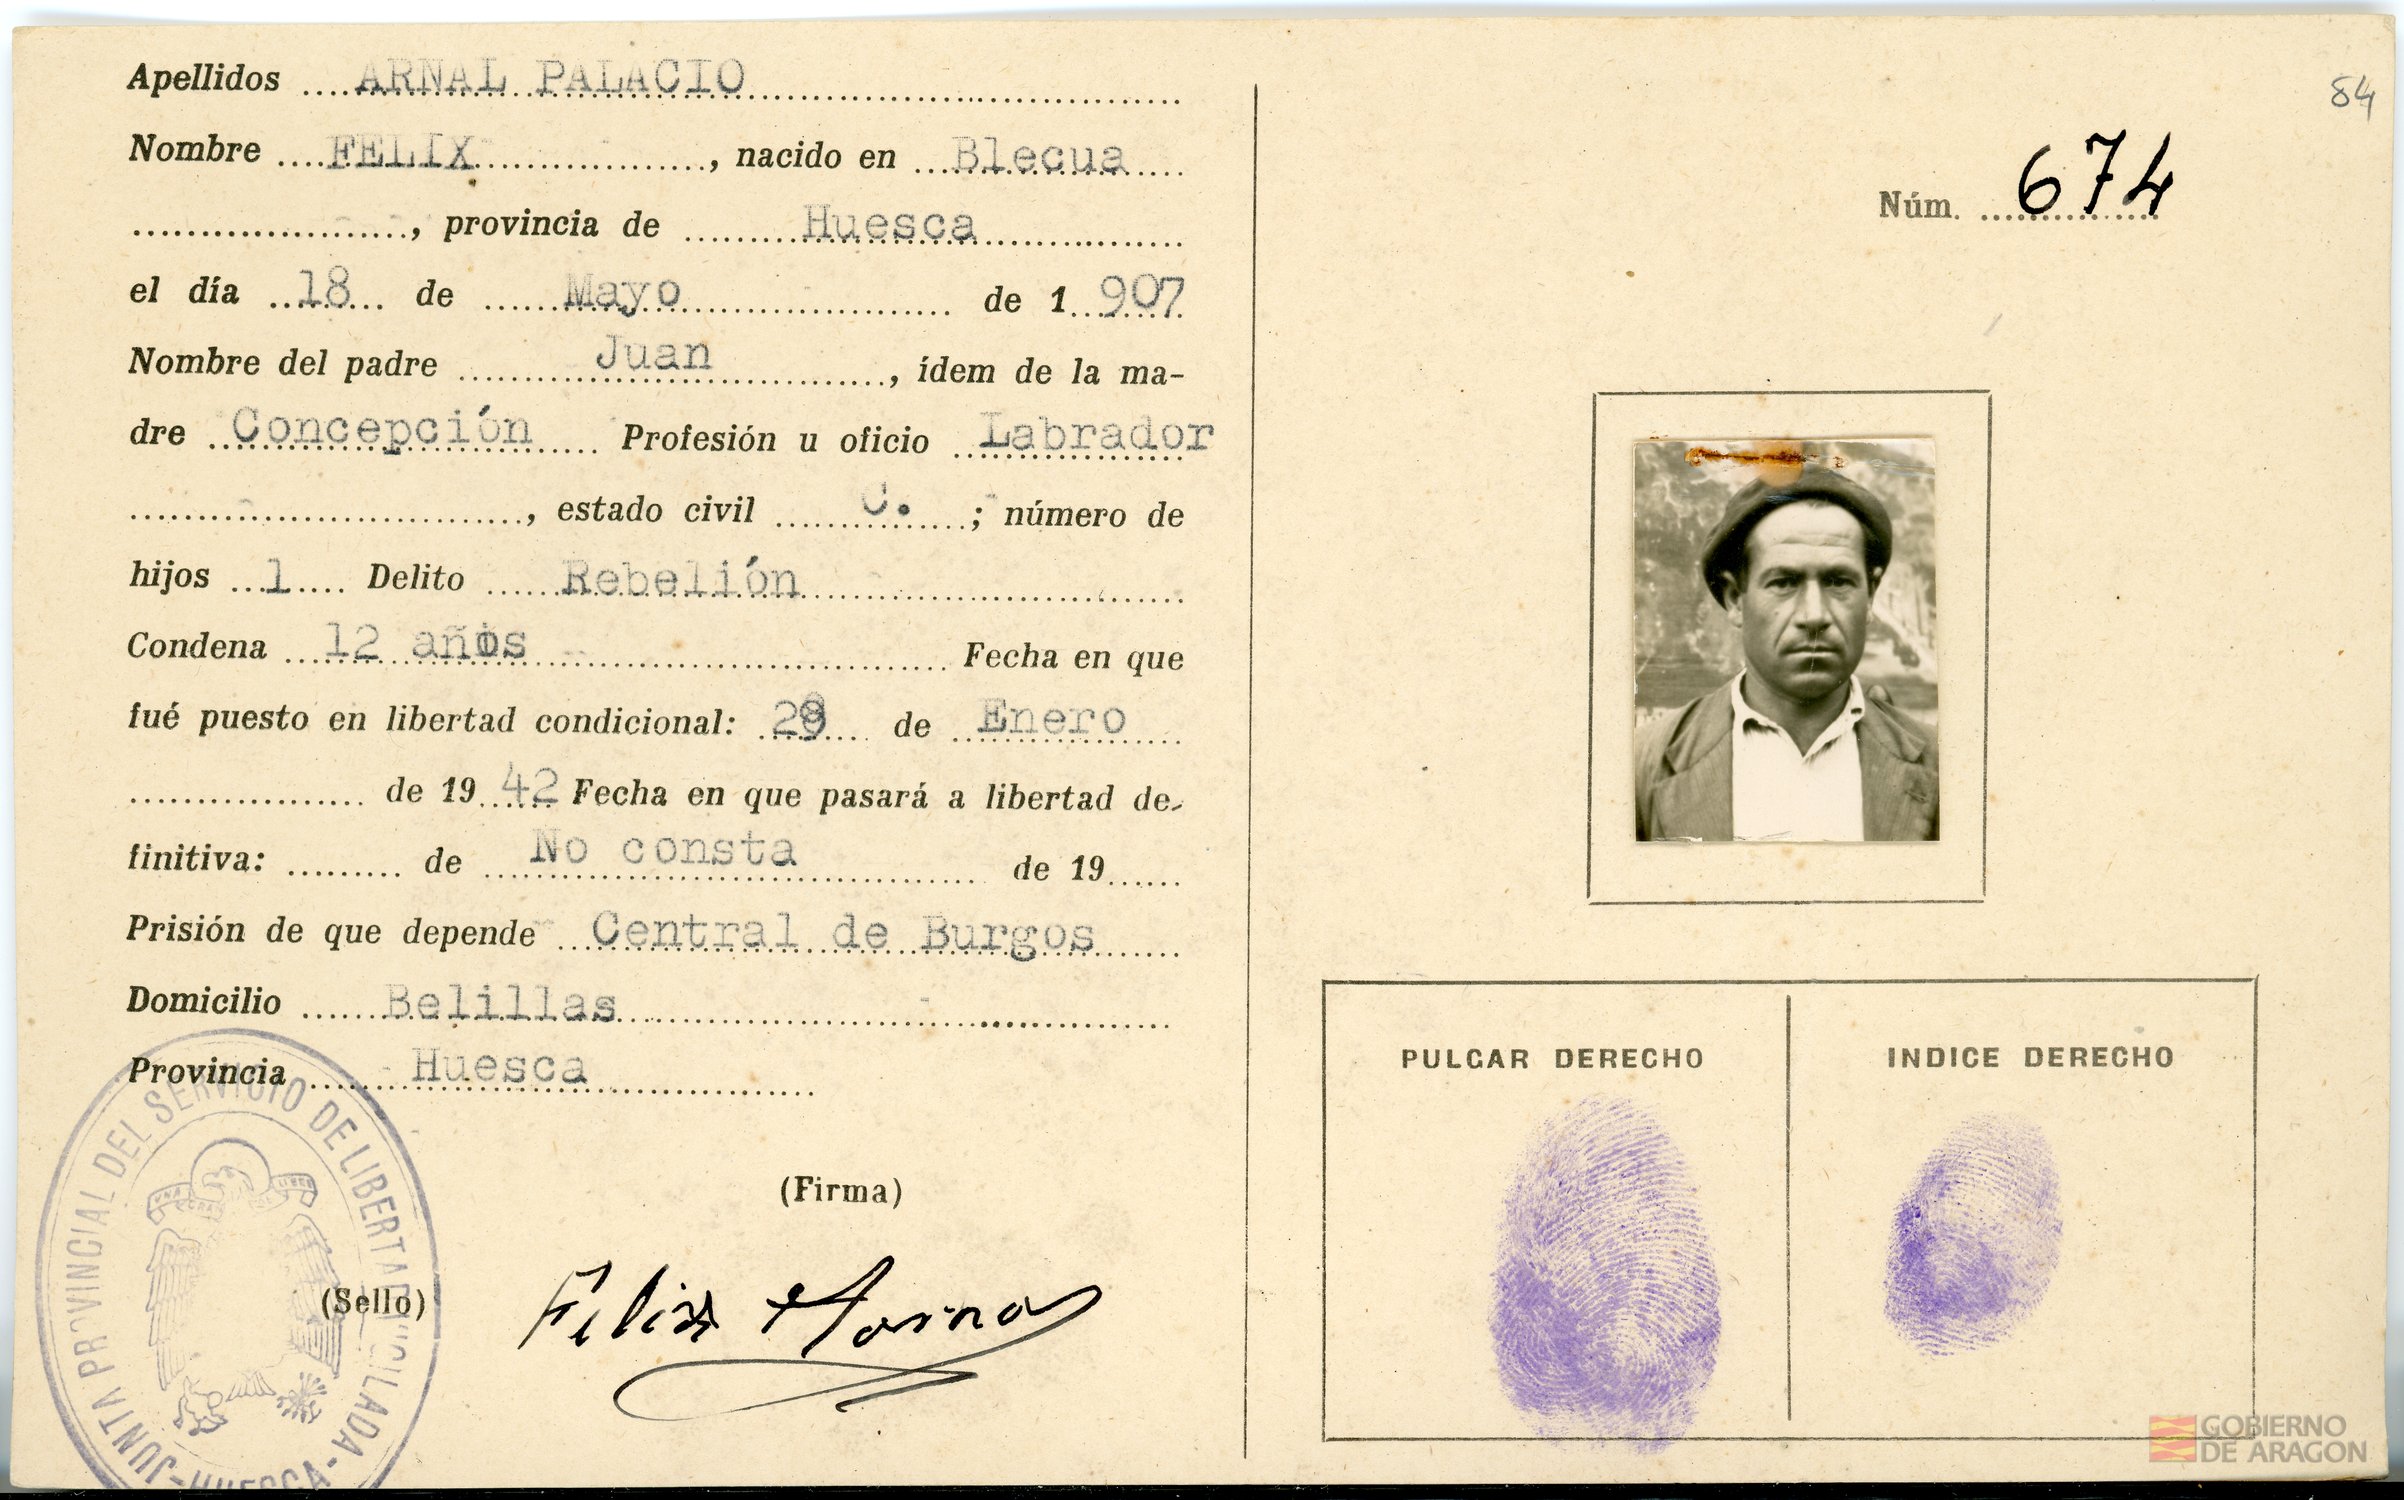 Apellidos ARNAL PALACIO
Nombre FELIX, nacido en Blecua
, provincia de Huesca
el día 18 de Mayo de 1 907
Nombre del padre Juan, ídem de la ma-
dre Concepción Profesión u oficio Labrador
, estado civil C. ; número de
hijos 1 Delito Rebelión
Condena 12 años Fecha en que
fué puesto en libertad condicional: 29 de Enero
de 19 42 Fecha en que pasará a libertad de-
finitiva: de No consta de 19
Prisión de que depende Central de Burgos
Domicilio Belillas
Provincia Huesca
(Firma)
(Sello)
Felix Arnal
JUNTA PROVINCIAL DEL SERVICIO DE LIBERTAD VIGILADA - HUESCA -
84
Núm. 674
PULGAR DERECHO
INDICE DERECHO
GOBIERNO
DE ARAGON